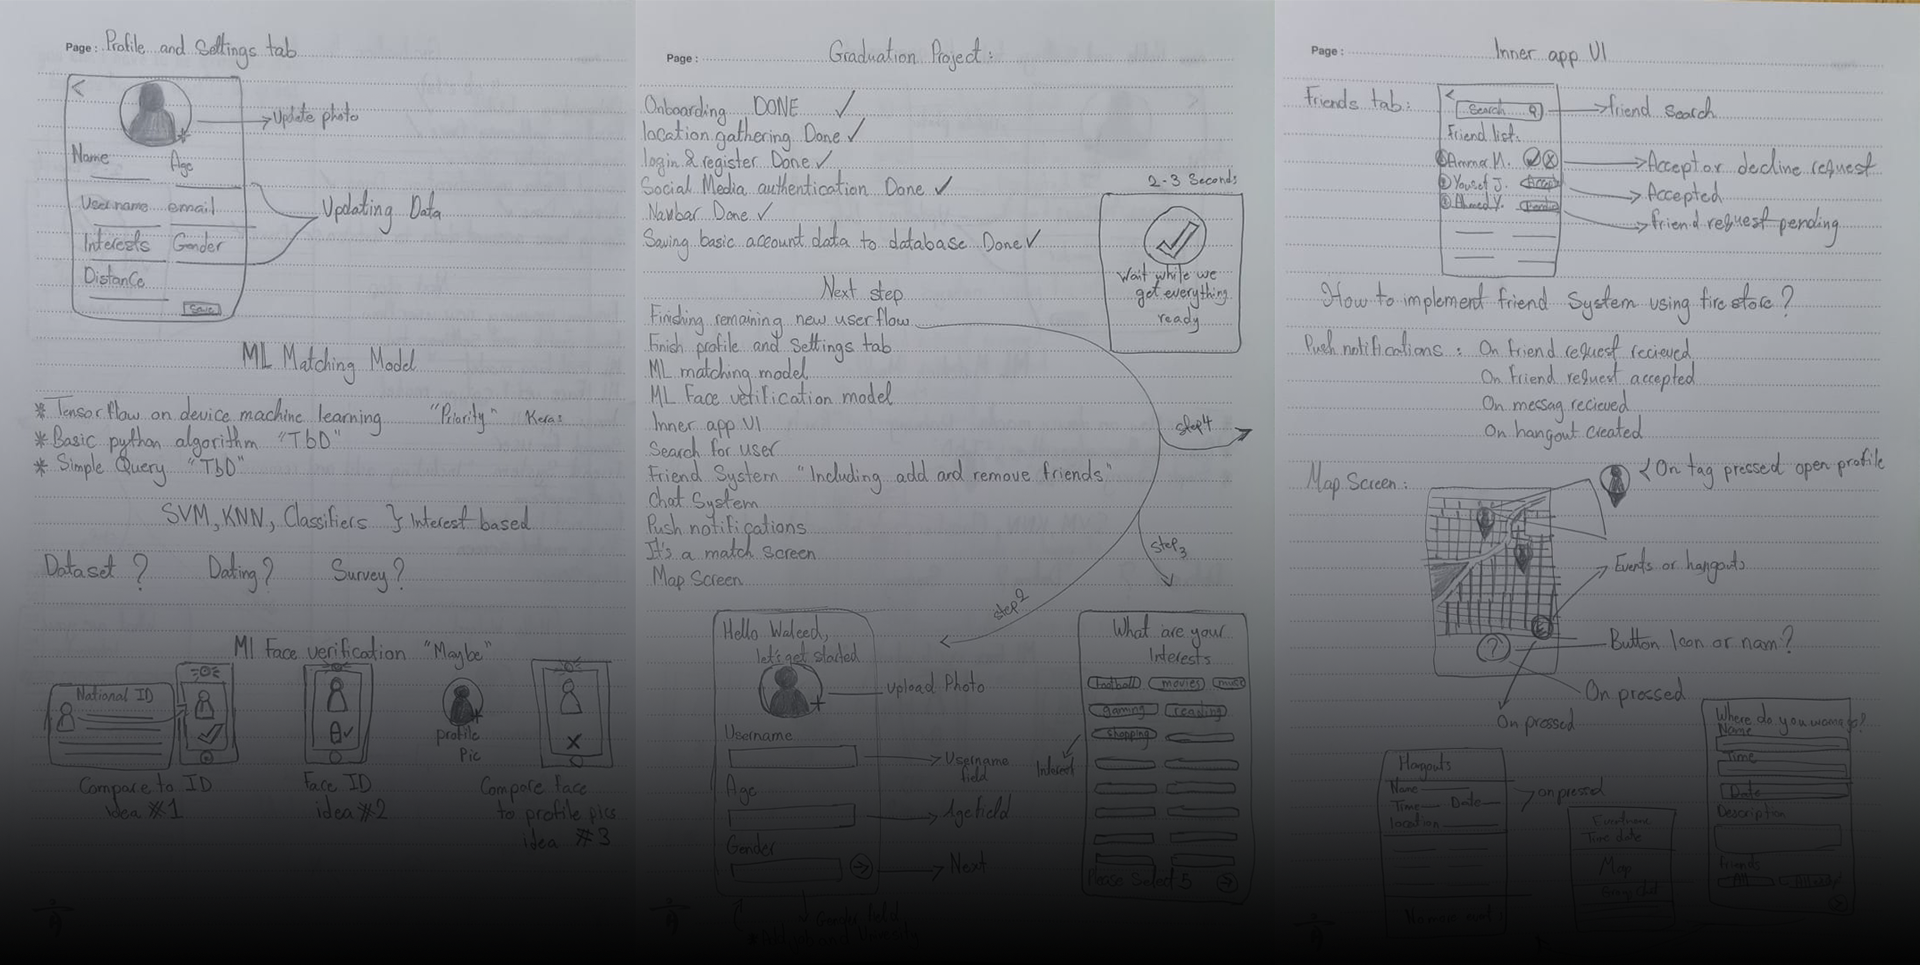 Page: Profile and Settings tab
Update photo
Name
Age
Username email
Updating Data
Interests Gender
Distance
Save
ML Matching Model
* Tensorflow on device machine learning "Priority" Keras
* Basic python algorithm "TbD"
* Simple Query "TbD"
SVM, KNN, Classifiers } Interest based
Dataset? Dating? Survey?
Ml Face verification "Maybe"
National ID
profile
Pic
Compare to ID
idea #1
Face ID
idea #2
Compare Face
to profile pics
idea #3
Page: Graduation Project:
Onboarding DONE ✓
location gathering Done ✓
login & register Done ✓
Social Media authentication Done ✓
Navbar Done ✓
Saving basic account data to database Done ✓
2-3 Seconds
Wait while we
get everything
ready
Next step
Finishing remaining new user flow
Finish profile and Settings tab
ML matching model
ML Face verification model
Inner app UI
Search for user
Friend System "Including add and remove friends"
Chat System
Push notifications
It's a match screen
Map Screen
step4
step3
step2
Hello Waleed,
let's get started
Upload Photo
Username
Username
field
Age
Age field
Gender
Next
What are your
Interests
football movies
gaming reading
shopping
Interest
Please Select 5
Page: Inner app UI
Friends tab:
Search
friend search
Friend list:
Ammar N.
Accept or decline request
Yousef J.
Accepted
Ahmed Y.
friend request pending
How to implement friend System using fire store?
Push notifications: On friend request recieved
On friend request accepted
On messag recieved
On hangout created
Map Screen:
On tag pressed open profile
Events or hangouts
?
Button Icon or nam?
On pressed
On pressed
Hangouts
Name
Time Date
location
on pressed
Time date
Map
Where do you wanna go?
Name
Time
Date
Description
Friends